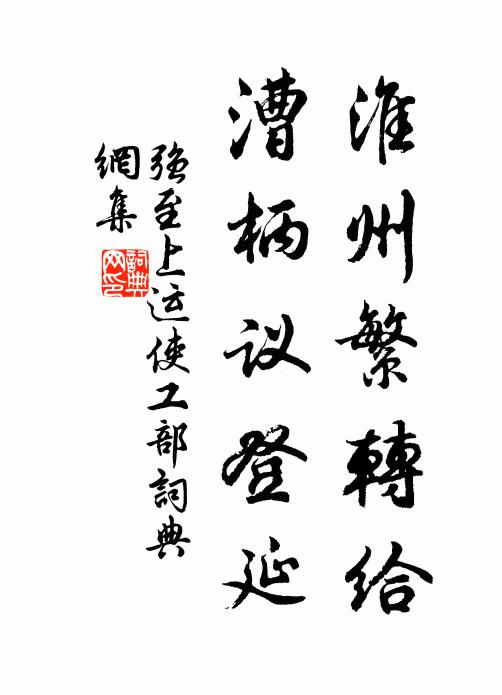 淮州繁轉给
漕柄议登延
强至上运使工部詞典
網集
詞典网印